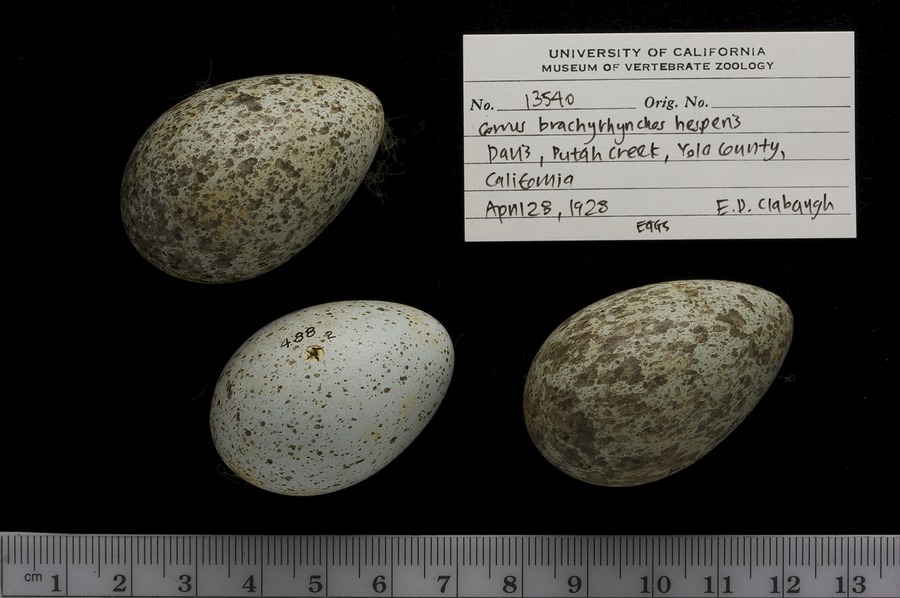 UNIVERSITY OF CALIFORNIA
MUSEUM OF VERTEBRATE ZOOLOGY
No. 13540 Orig. No.
Corvus brachyrhynchos hesperis
Davis, Putah Creek, Yolo County,
California
April 28, 1928 E.D. Clabaugh
EGGS
488 2
cm 1 2 3 4 5 6 7 8 9 10 11 12 13